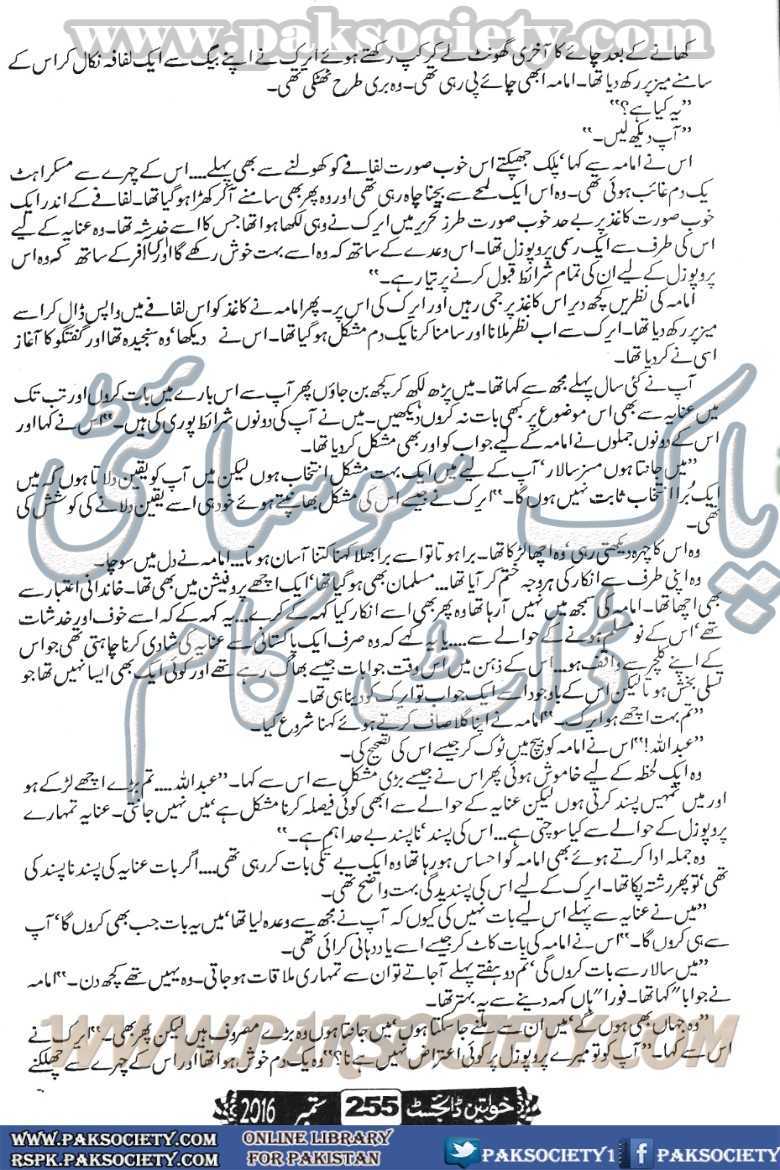 www.paksociety.com
کھانے کے بعد چائے کا آخری گھونٹ لے کر کپ رکھتے ہوئے ایرک نے اپنے بیگ سے ایک لفافہ نکال کر اس کے
سامنے میز پر رکھ دیا تھا۔ امامہ ابھی چائے پی رہی تھی۔ وہ بری طرح ٹھٹکی تھی۔
”یہ کیا ہے؟“
”آپ دیکھ لیں۔“
اس نے امامہ سے کہا‘ پلک جھپکتے اس خوب صورت لفافے کو کھولنے سے بھی پہلے.... اس کے چہرے سے مسکراہٹ
یک دم غائب ہوئی تھی۔ وہ اس ایک لمحے سے بچنا چاہ رہی تھی اور وہ پھر بھی سامنے آکر کھڑا ہو گیا تھا۔ لفافے کے اندر ایک
خوب صورت کاغذ پر بے حد خوب صورت طرز تحریر میں ایرک نے وہی لکھا ہوا تھا جس کا اسے خدشہ تھا۔ وہ عنایہ کے لیے
اس کی طرف سے ایک رسمی پروپوزل تھا۔ اس وعدے کے ساتھ کہ وہ اسے بہت خوش رکھے گا اور اس آفر کے ساتھ کہ وہ اس
پروپوزل کے لیے ان کی تمام شرائط قبول کرنے پر تیار ہے۔“
امامہ کی نظریں کچھ دیر اس کاغذ پر جمی رہیں اور ایرک کی اس پر۔ پھر امامہ نے کاغذ کو اس لفافے میں واپس ڈال کر اسے
میز پر رکھ دیا تھا۔ ایرک سے اب نظر ملانا اور سامنا کرنا یک دم مشکل ہو گیا تھا۔ اس نے دیکھا‘ وہ سنجیدہ تھا اور گفتگو کا آغاز
اسی نے کر دیا تھا۔
آپ نے کئی سال پہلے مجھ سے کہا تھا۔ میں پڑھ لکھ کر کچھ بن جاؤں پھر آپ سے اس بارے میں بات کروں اور تب تک
میں عنایہ سے بھی اس موضوع پر کبھی بات نہ کروں دیکھیں۔ میں نے آپ کی دونوں شرائط پوری کی ہیں۔“ اس نے کہا اور
اس کے دونوں جملوں نے امامہ کے لیے جواب کو اور بھی مشکل کر دیا تھا۔
”میں جانتا ہوں مسز سالار‘ آپ کے لیے میں ایک بہت مشکل انتخاب ہوں لیکن میں آپ کو یقین دلاتا ہوں کہ میں
ایک برا انتخاب ثابت نہیں ہوں گا۔“ ایرک نے جیسے اس کی مشکل بھانپتے ہوئے خود ہی اسے یقین دلانے کی کوشش کی
تھی۔
وہ اس کا چہرہ دیکھتی رہی‘ وہ اچھا لڑکا تھا۔ برا ہوتا تو اسے برا بھلا کہنا کتنا آسان ہوتا... امامہ نے دل میں سوچا۔
وہ اپنی طرف سے انکار کی ہر وجہ ختم کر آیا تھا... مسلمان بھی ہو گیا تھا‘ ایک اچھے پروفیشن میں بھی تھا۔ خاندانی اعتبار سے
بھی اچھا تھا۔ امامہ کی سمجھ میں نہیں آرہا تھا وہ پھر بھی اسے انکار کیا کہہ کے کرے... یہ کہہ کے کہ اسے خوف اور خدشات
تھے‘ اس کے نو مسلم ہونے کے حوالے سے.... یا یہ کہے کہ وہ صرف ایک پاکستانی سے عنایہ کی شادی کرنا چاہتی تھی جو اس
کے اپنے کلچر سے واقف ہو... اس کے ذہن میں اس وقت جوابات جیسے بھاگ رہے تھے اور کوئی ایک بھی ایسا نہیں تھا جو
تسلی بخش ہوتا لیکن اس کے باوجود اسے ایک جواب تو ایرک کو دینا ہی تھا۔
”تم بہت اچھے ہو ایرک۔“ امامہ نے اپنا گلا صاف کرتے ہوئے کہنا شروع کیا۔
”عبداللہ!“ اس نے امامہ کو بیچ میں ٹوک کر جیسے اس کی تصحیح کی۔
وہ ایک لحظہ کے لیے خاموش ہوئی پھر اس نے جیسے بڑی مشکل سے اس سے کہا۔ ”عبداللہ.... تم بڑے اچھے لڑکے ہو
اور میں تمہیں پسند کرتی ہوں لیکن عنایہ کے حوالے سے ابھی کوئی فیصلہ کرنا مشکل ہے‘ میں نہیں جانتی۔ عنایہ تمہارے
پروپوزل کے حوالے سے کیا سوچتی ہے... اس کی پسند‘ ناپسند بے حد اہم ہے۔“
وہ جملہ ادا کرتے ہوئے بھی امامہ کو احساس ہو رہا تھا وہ ایک بے تکی بات کر رہی تھی.... اگر بات عنایہ کی پسند ناپسند کی
تھی‘ تو پھر رشتہ پکا تھا۔ ایرک کے لیے اس کی پسندیدگی بہت واضح تھی۔
”میں نے عنایہ سے پہلے اس لیے بات نہیں کی کیوں کہ آپ نے مجھ سے وعدہ لیا تھا‘ میں یہ بات جب بھی کروں گا‘ آپ
سے ہی کروں گا۔“ اس نے امامہ کی بات کاٹ کر جیسے اسے یاد دہانی کرائی تھی۔
”میں سالار سے بات کروں گی‘ تم دو ہفتے پہلے آجاتے تو ان سے تمہاری ملاقات ہو جاتی۔ وہ یہیں تھے کچھ دن۔“ امامہ
نے جوابا“ کہا تھا۔ فورا“ ہاں کہہ دینے سے یہ بہتر تھا۔
”وہ جہاں بھی ہوں گے‘ میں ان سے ملنے جا سکتا ہوں‘ میں جانتا ہوں وہ بڑے مصروف ہیں لیکن پھر بھی۔“ ایرک نے
اس سے کہا۔ ”آپ کو تو میرے پروپوزل پر کوئی اعتراض نہیں ہے نا؟“ وہ یک دم خوش ہوا تھا اور اس کے چہرے سے چھلکنے
پاک سوسائٹی
ڈاٹ کام
WWW.PAKSOCIETY.COM
خواتین ڈائجسٹ 255 ستمبر 2016
WWW.PAKSOCIETY.COM ONLINE LIBRARY PAKSOCIETY1 PAKSOCIETY
RSPK.PAKSOCIETY.COM FOR PAKISTAN